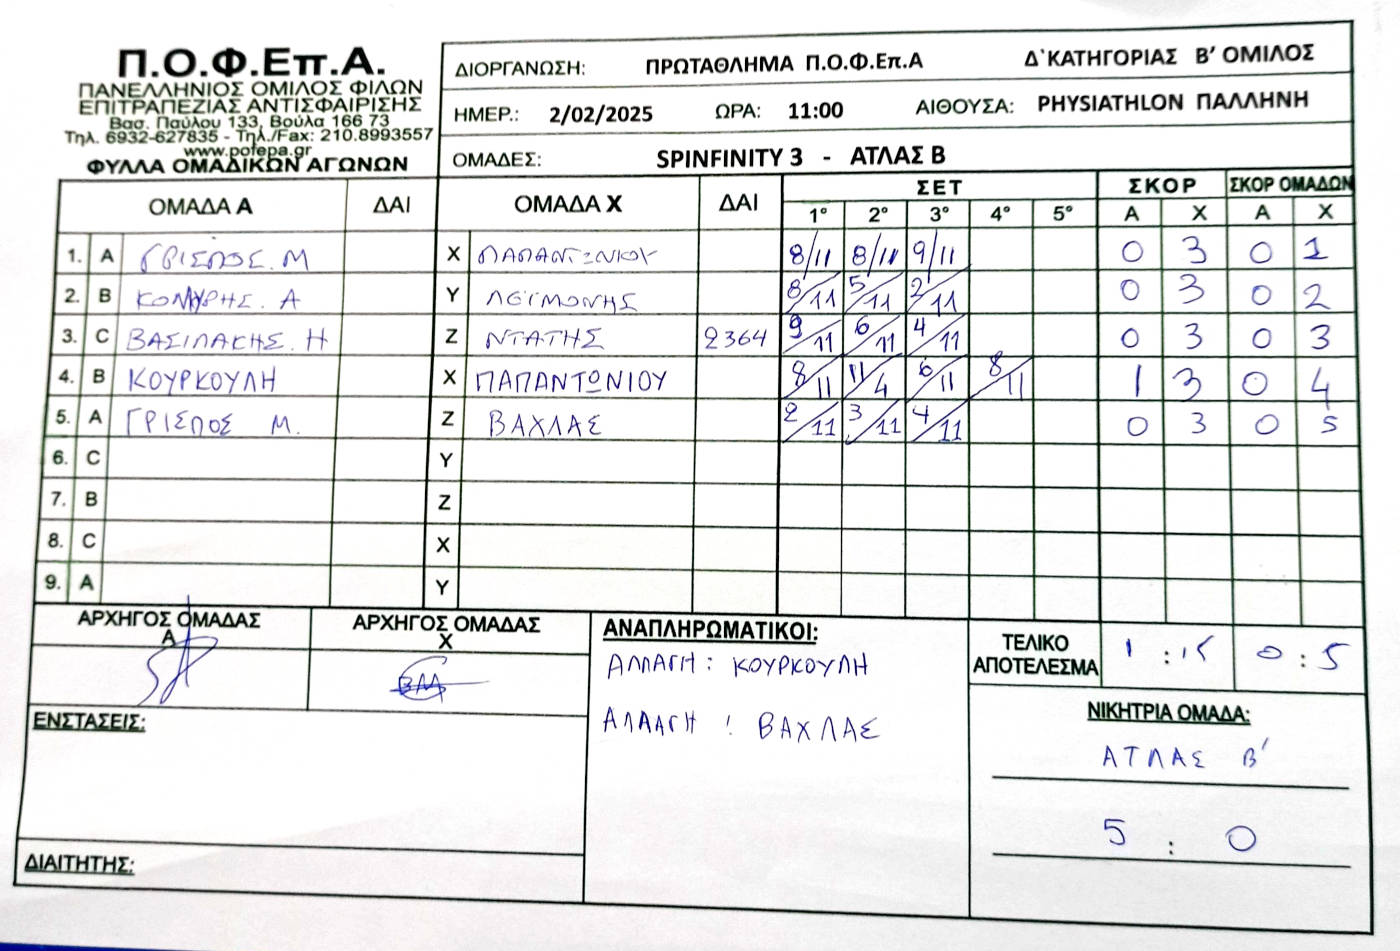 Π.Ο.Φ.Επ.Α.
ΠΑΝΕΛΛΗΝΙΟΣ ΟΜΙΛΟΣ ΦΙΛΩΝ
ΕΠΙΤΡΑΠΕΖΙΑΣ ΑΝΤΙΣΦΑΙΡΙΣΗΣ
Βασ. Παύλου 133, Βούλα 166 73
Τηλ. 6932-627835 - Τηλ./Fax: 210.8993557
www.pofepa.gr
ΦΥΛΛΑ ΟΜΑΔΙΚΩΝ ΑΓΩΝΩΝ
ΔΙΟΡΓΑΝΩΣΗ: ΠΡΩΤΑΘΛΗΜΑ Π.Ο.Φ.Επ.Α Δ`ΚΑΤΗΓΟΡΙΑΣ Β' ΟΜΙΛΟΣ
ΗΜΕΡ.: 2/02/2025 ΩΡΑ: 11:00 ΑΙΘΟΥΣΑ: PHYSIATHLON ΠΑΛΛΗΝΗ
ΟΜΑΔΕΣ: SPINFINITY 3 - ΑΤΛΑΣ Β
ΟΜΑΔΑ Α ΔΑΙ ΟΜΑΔΑ Χ ΔΑΙ ΣΕΤ ΣΚΟΡ ΣΚΟΡ ΟΜΑΔΩΝ
1° 2° 3° 4° 5° Α Χ Α Χ
1. A ΓΡΙΣΠΟΣ. Μ X ΠΑΠΑΝΤΩΝΙΟΥ 8/11 8/11 9/11 0 3 0 1
2. B Α Y ΛΕΪΜΟΝΗΣ 8/11 5/11 2/11 0 3 0 2
3. C ΒΑΣΙΛΑΚΗΣ. Η Z ΝΤΑΤΗΣ 2364 9/11 6/11 4/11 0 3 0 3
4. B ΚΟΥΡΚΟΥΛΗ X ΠΑΠΑΝΤΩΝΙΟΥ 8/11 11/4 6/11 8/11 1 3 0 4
5. A ΓΡΙΣΠΟΣ Μ. Z ΒΑΧΛΑΣ 2/11 3/11 4/11 0 3 0 5
6. C Y
7. B Z
8. C X
9. A Y
ΑΡΧΗΓΟΣ ΟΜΑΔΑΣ Α
ΑΡΧΗΓΟΣ ΟΜΑΔΑΣ Χ
ΕΝΣΤΑΣΕΙΣ:
ΔΙΑΙΤΗΤΗΣ:
ΑΝΑΠΛΗΡΩΜΑΤΙΚΟΙ:
ΑΛΛΑΓΗ : ΚΟΥΡΚΟΥΛΗ
ΑΛΛΑΓΗ : ΒΑΧΛΑΣ
ΤΕΛΙΚΟ ΑΠΟΤΕΛΕΣΜΑ 1 : 15 0 : 5
ΝΙΚΗΤΡΙΑ ΟΜΑΔΑ:
ΑΤΛΑΣ Β'
5 : 0